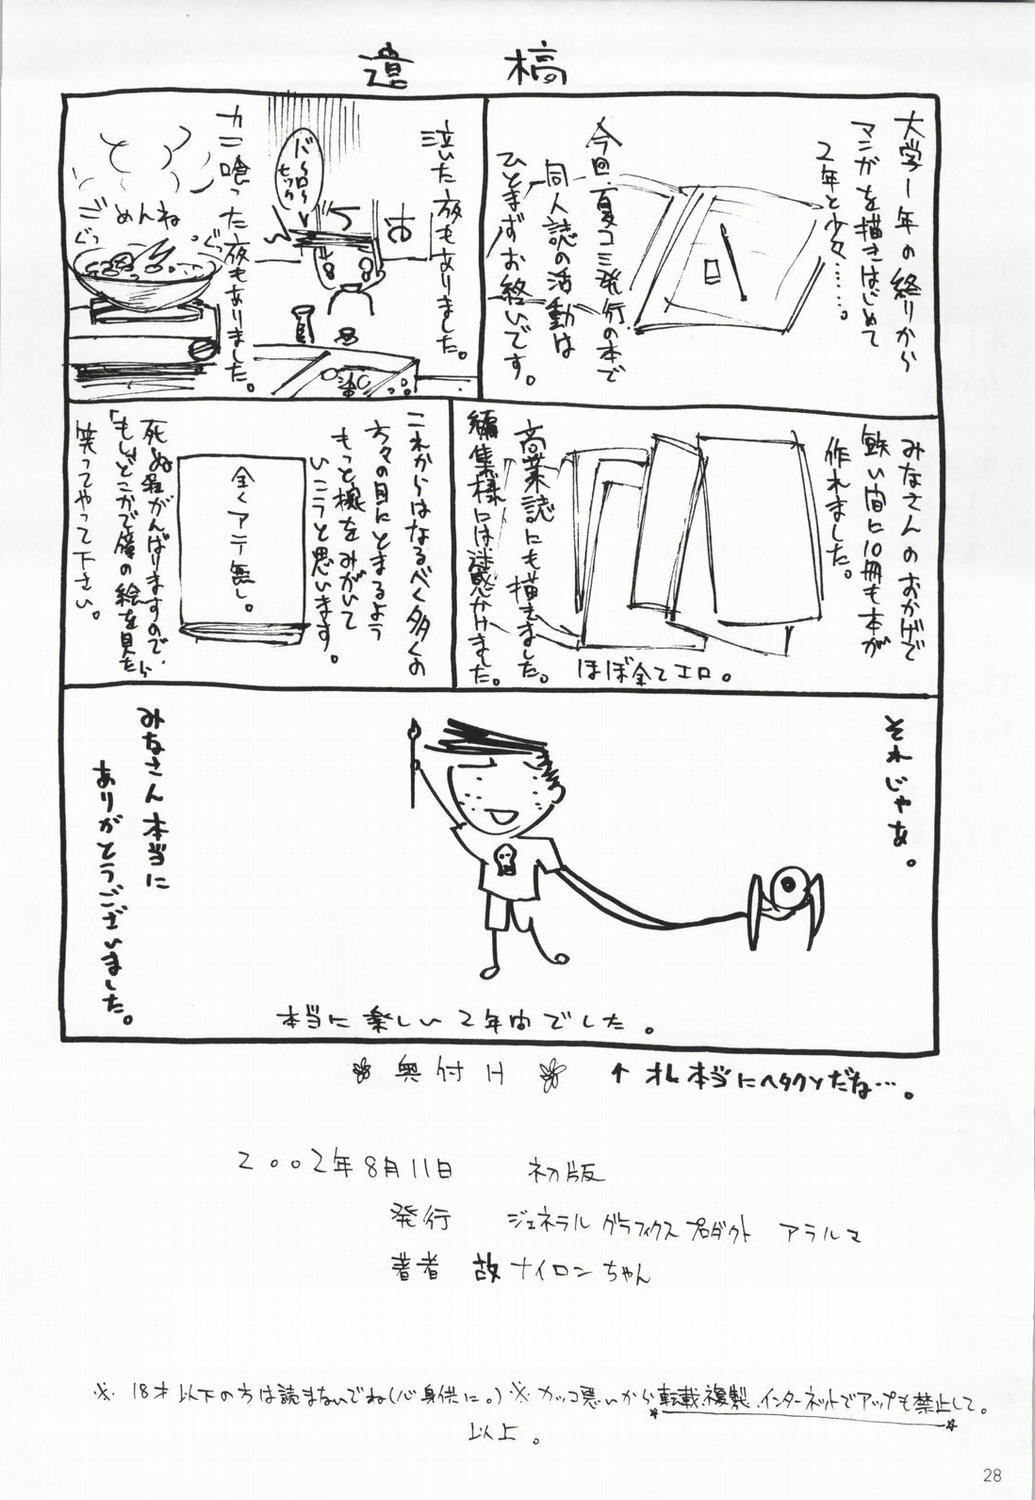 遺稿
大学一年の終りから
マンガを描きはじめて
2年と少々……。
今回、夏コミ発行の本で
同人誌の活動は
ひとまずお終いです。
泣いた夜もありました。
カニ喰った夜もありました。
ごめんね
ぐつ
ぐつ
みなさんのおかげで
短い間に10冊も本が
作れました。
商業誌にも描きました。
編集様には迷惑かけました。
ほぼ全てエロ。
これからはなるべく多くの
方々の目にとまるよう
もっと腕をみがいて
いこうと思います。
全くアテ無し。
死ぬ程がんばりますので、
「もし」どこかで僕の絵を見たら
笑ってやって下さい。
それじゃあ。
みなさん本当に
ありがとうございました。
本当に楽しい2年間でした。
奥付け
↑オレ本当にヘタクソだね…。
2002年8月11日 初版
発行 ジェネラルグラフィクスプロダクト アラルマ
著者 故ナイロンちゃん
※18才以下の方は読まないでね(心身供に。)※カッコ悪いから転載、複製、インターネットでアップも禁止して。
以上。
28